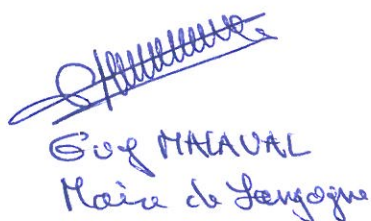 Guy MALAVAL
Maire de Langogne